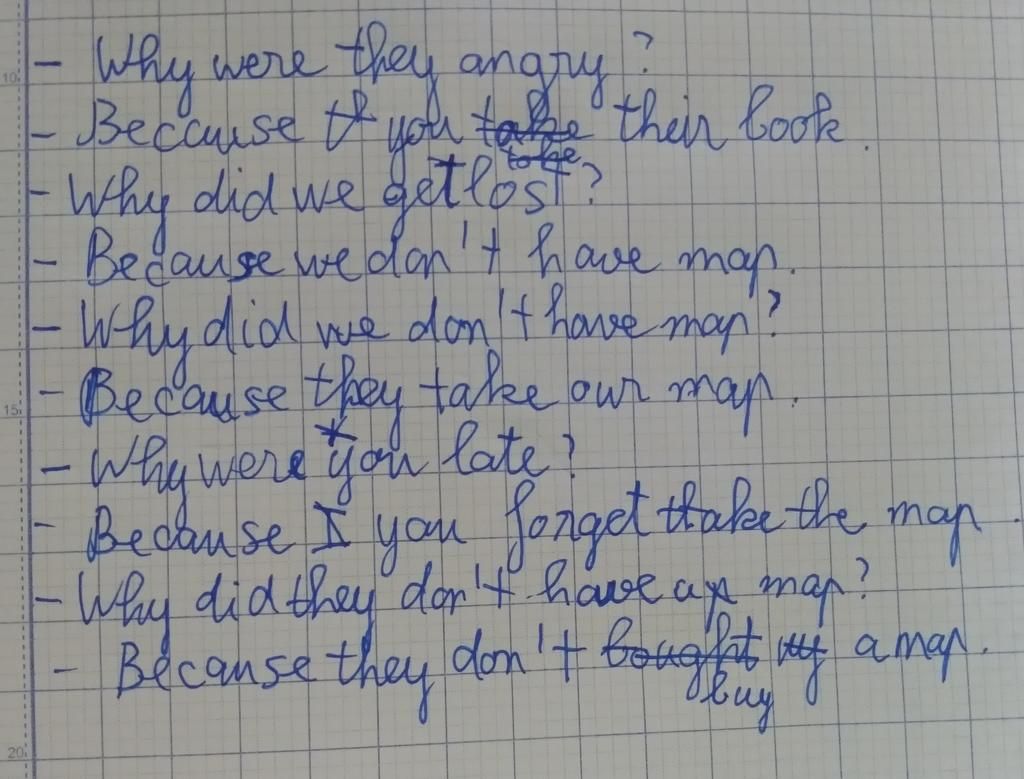 10
- Why were they angry?
- Because th you take their book.
take
- Why did we get lost?
- Because we don't have map.
- Why did we don't have map?
- Because they take our map.
15
- Why were you late?
- Because I you forget take the map.
- Why did they don't have a map?
- Because they don't bought my a map.
buy
20